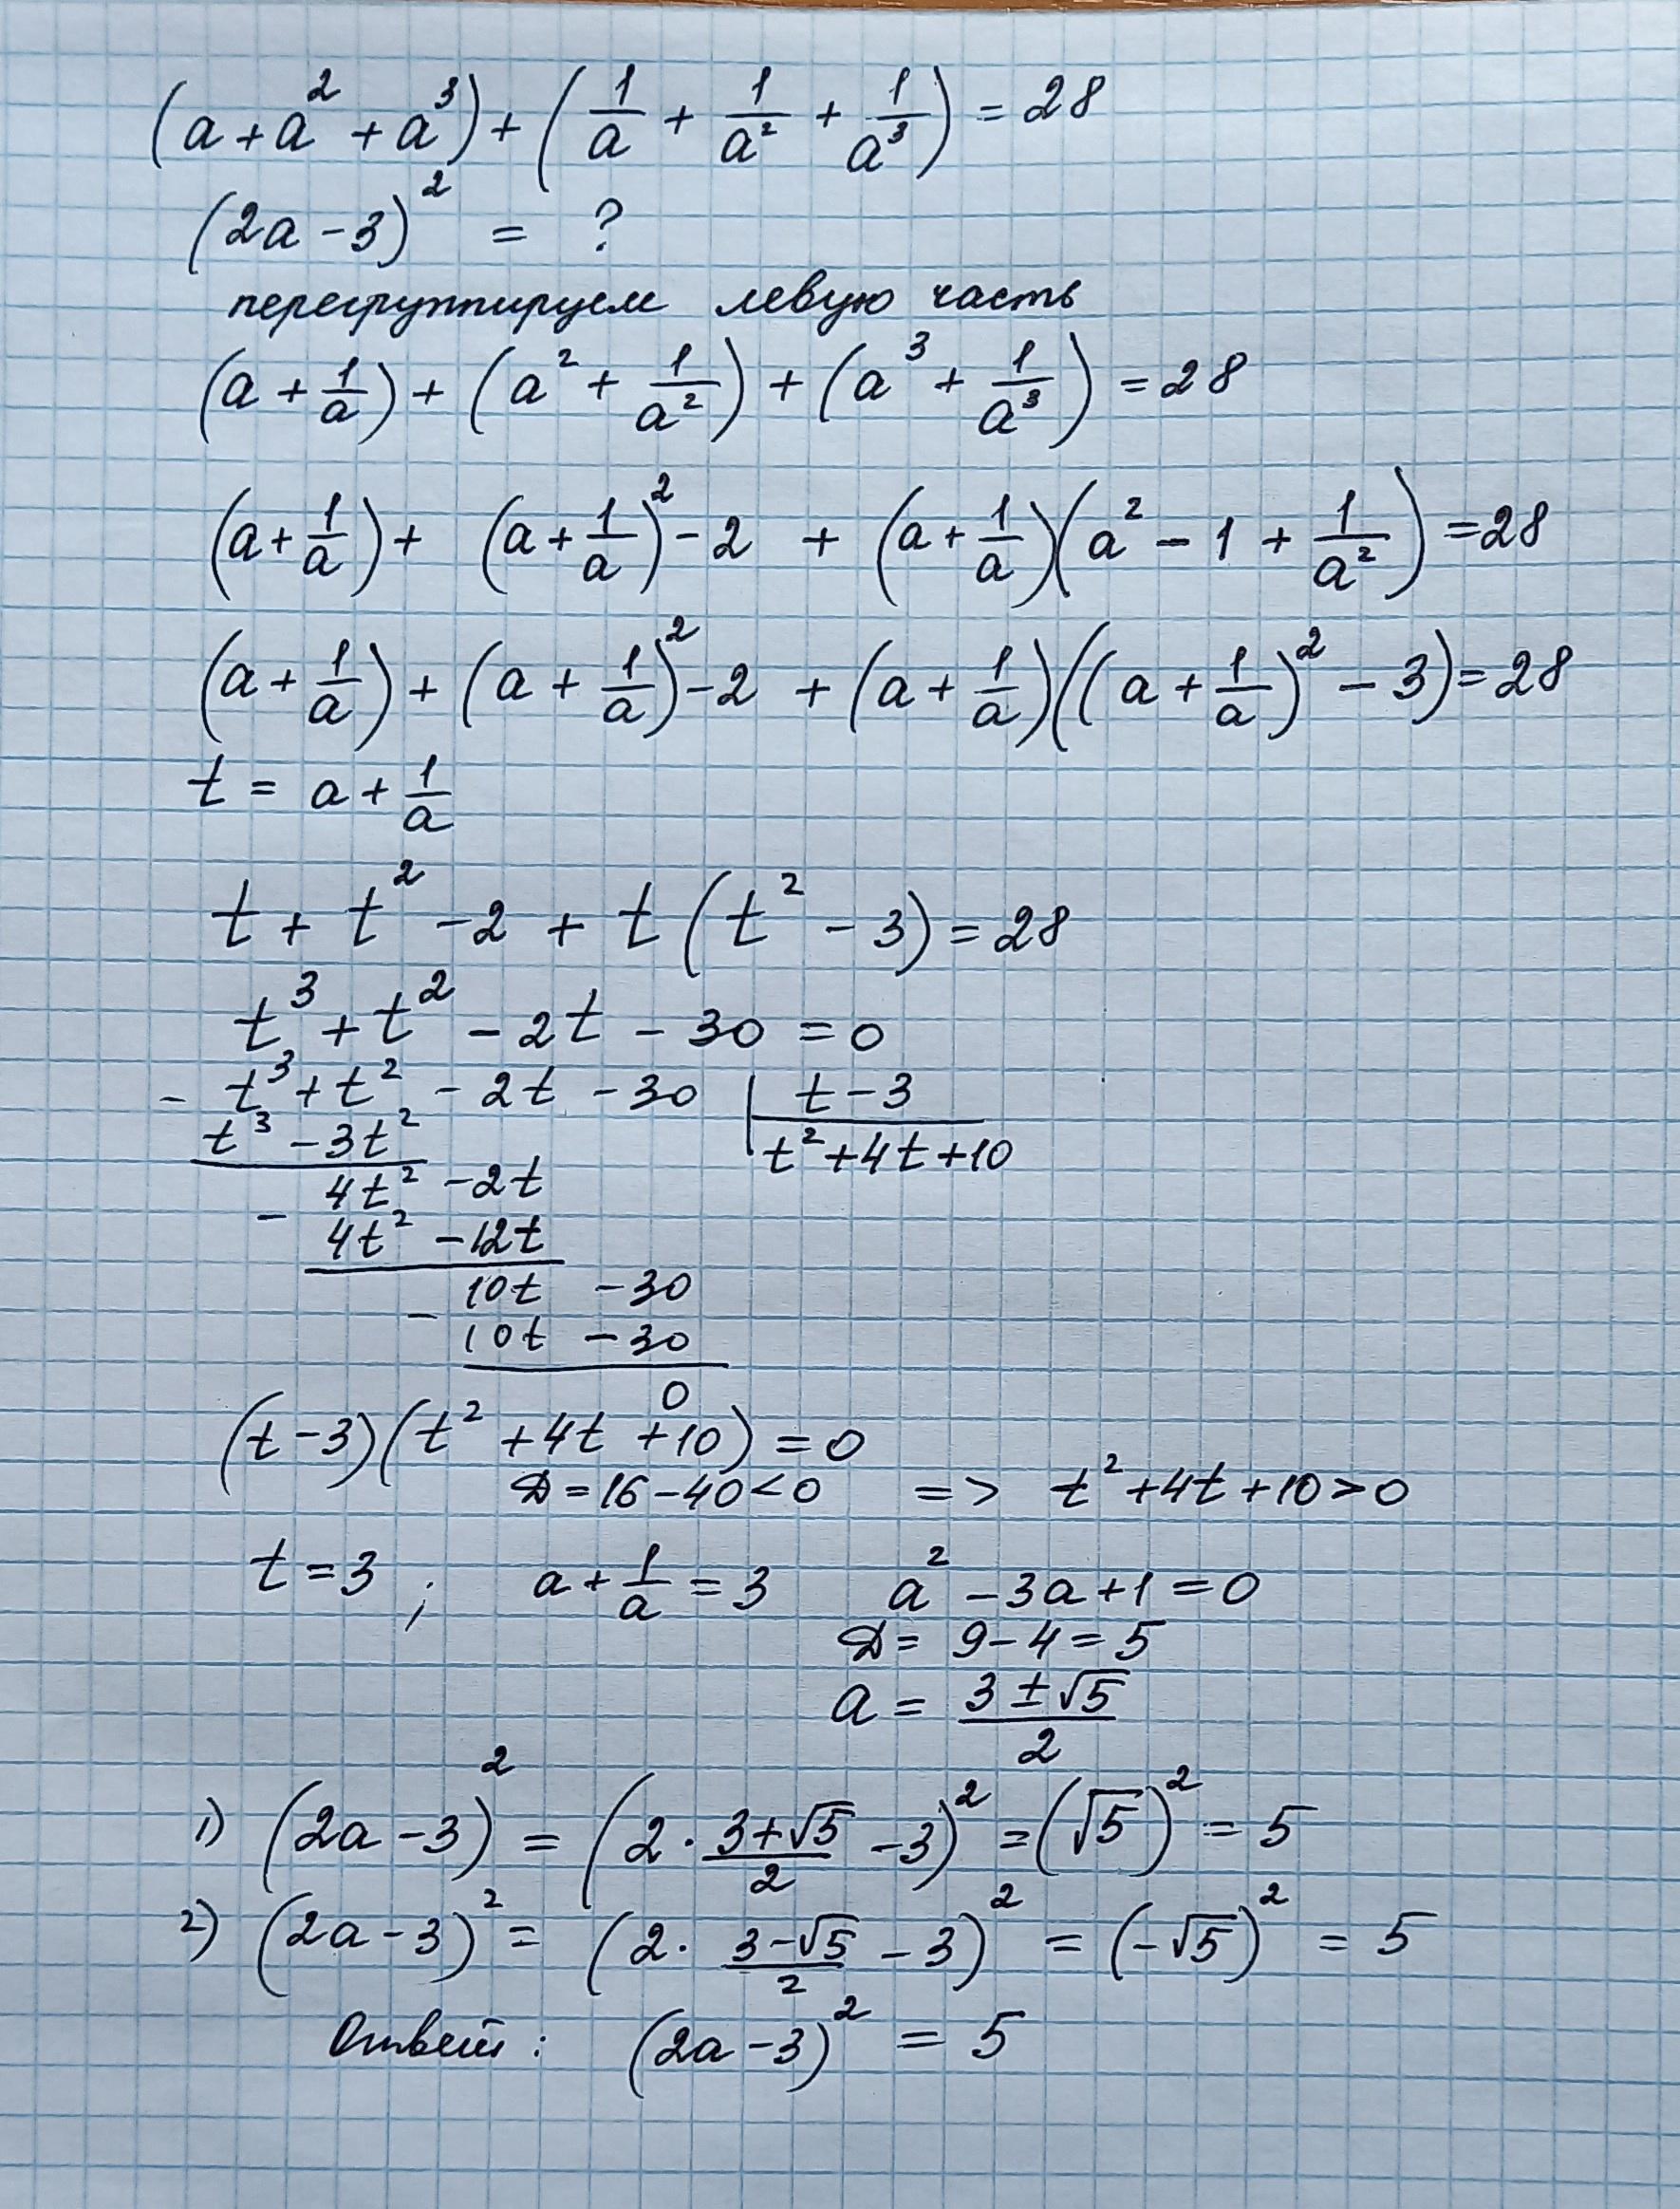 (a + a² + a³) + (1/a + 1/a² + 1/a³) = 28
(2a - 3)² = ?
перегруппируем левую часть
(a + 1/a) + (a² + 1/a²) + (a³ + 1/a³) = 28
(a + 1/a) + (a + 1/a)² - 2 + (a + 1/a)(a² - 1 + 1/a²) = 28
(a + 1/a) + (a + 1/a)² - 2 + (a + 1/a)((a + 1/a)² - 3) = 28
t = a + 1/a
t + t² - 2 + t(t² - 3) = 28
t³ + t² - 2t - 30 = 0
- t³ + t² - 2t - 30 | t - 3
t³ - 3t² | t² + 4t + 10
- 4t² - 2t
4t² - 12t
- 10t - 30
10t - 30
0
(t - 3)(t² + 4t + 10) = 0
D = 16 - 40 < 0 => t² + 4t + 10 > 0
t = 3 ; a + 1/a = 3 a² - 3a + 1 = 0
D = 9 - 4 = 5
a = (3 ± √5)/2
1) (2a - 3)² = (2 · (3 + √5)/2 - 3)² = (√5)² = 5
2) (2a - 3)² = (2 · (3 - √5)/2 - 3)² = (-√5)² = 5
Ответ: (2a - 3)² = 5